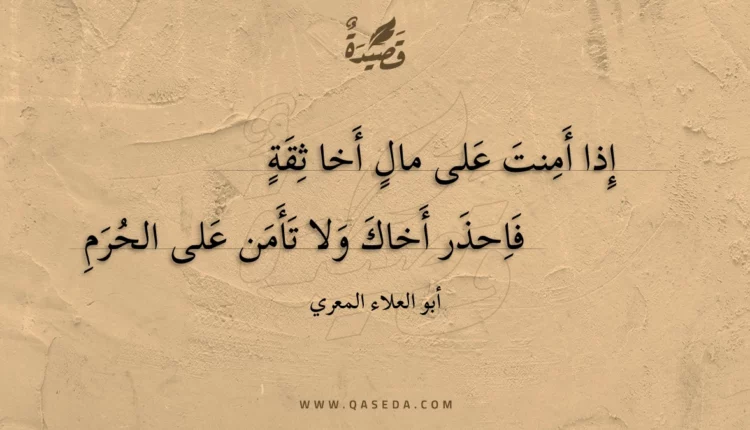 قَصِيدَةٌ
إِذا أَمِنتَ عَلى مالٍ أَخا ثِقَةٍ
فَاِحذَر أَخاكَ وَلا تَأَمَن عَلى الحُرَمِ
أبو العلاء المعري
WWW.QASEDA.COM